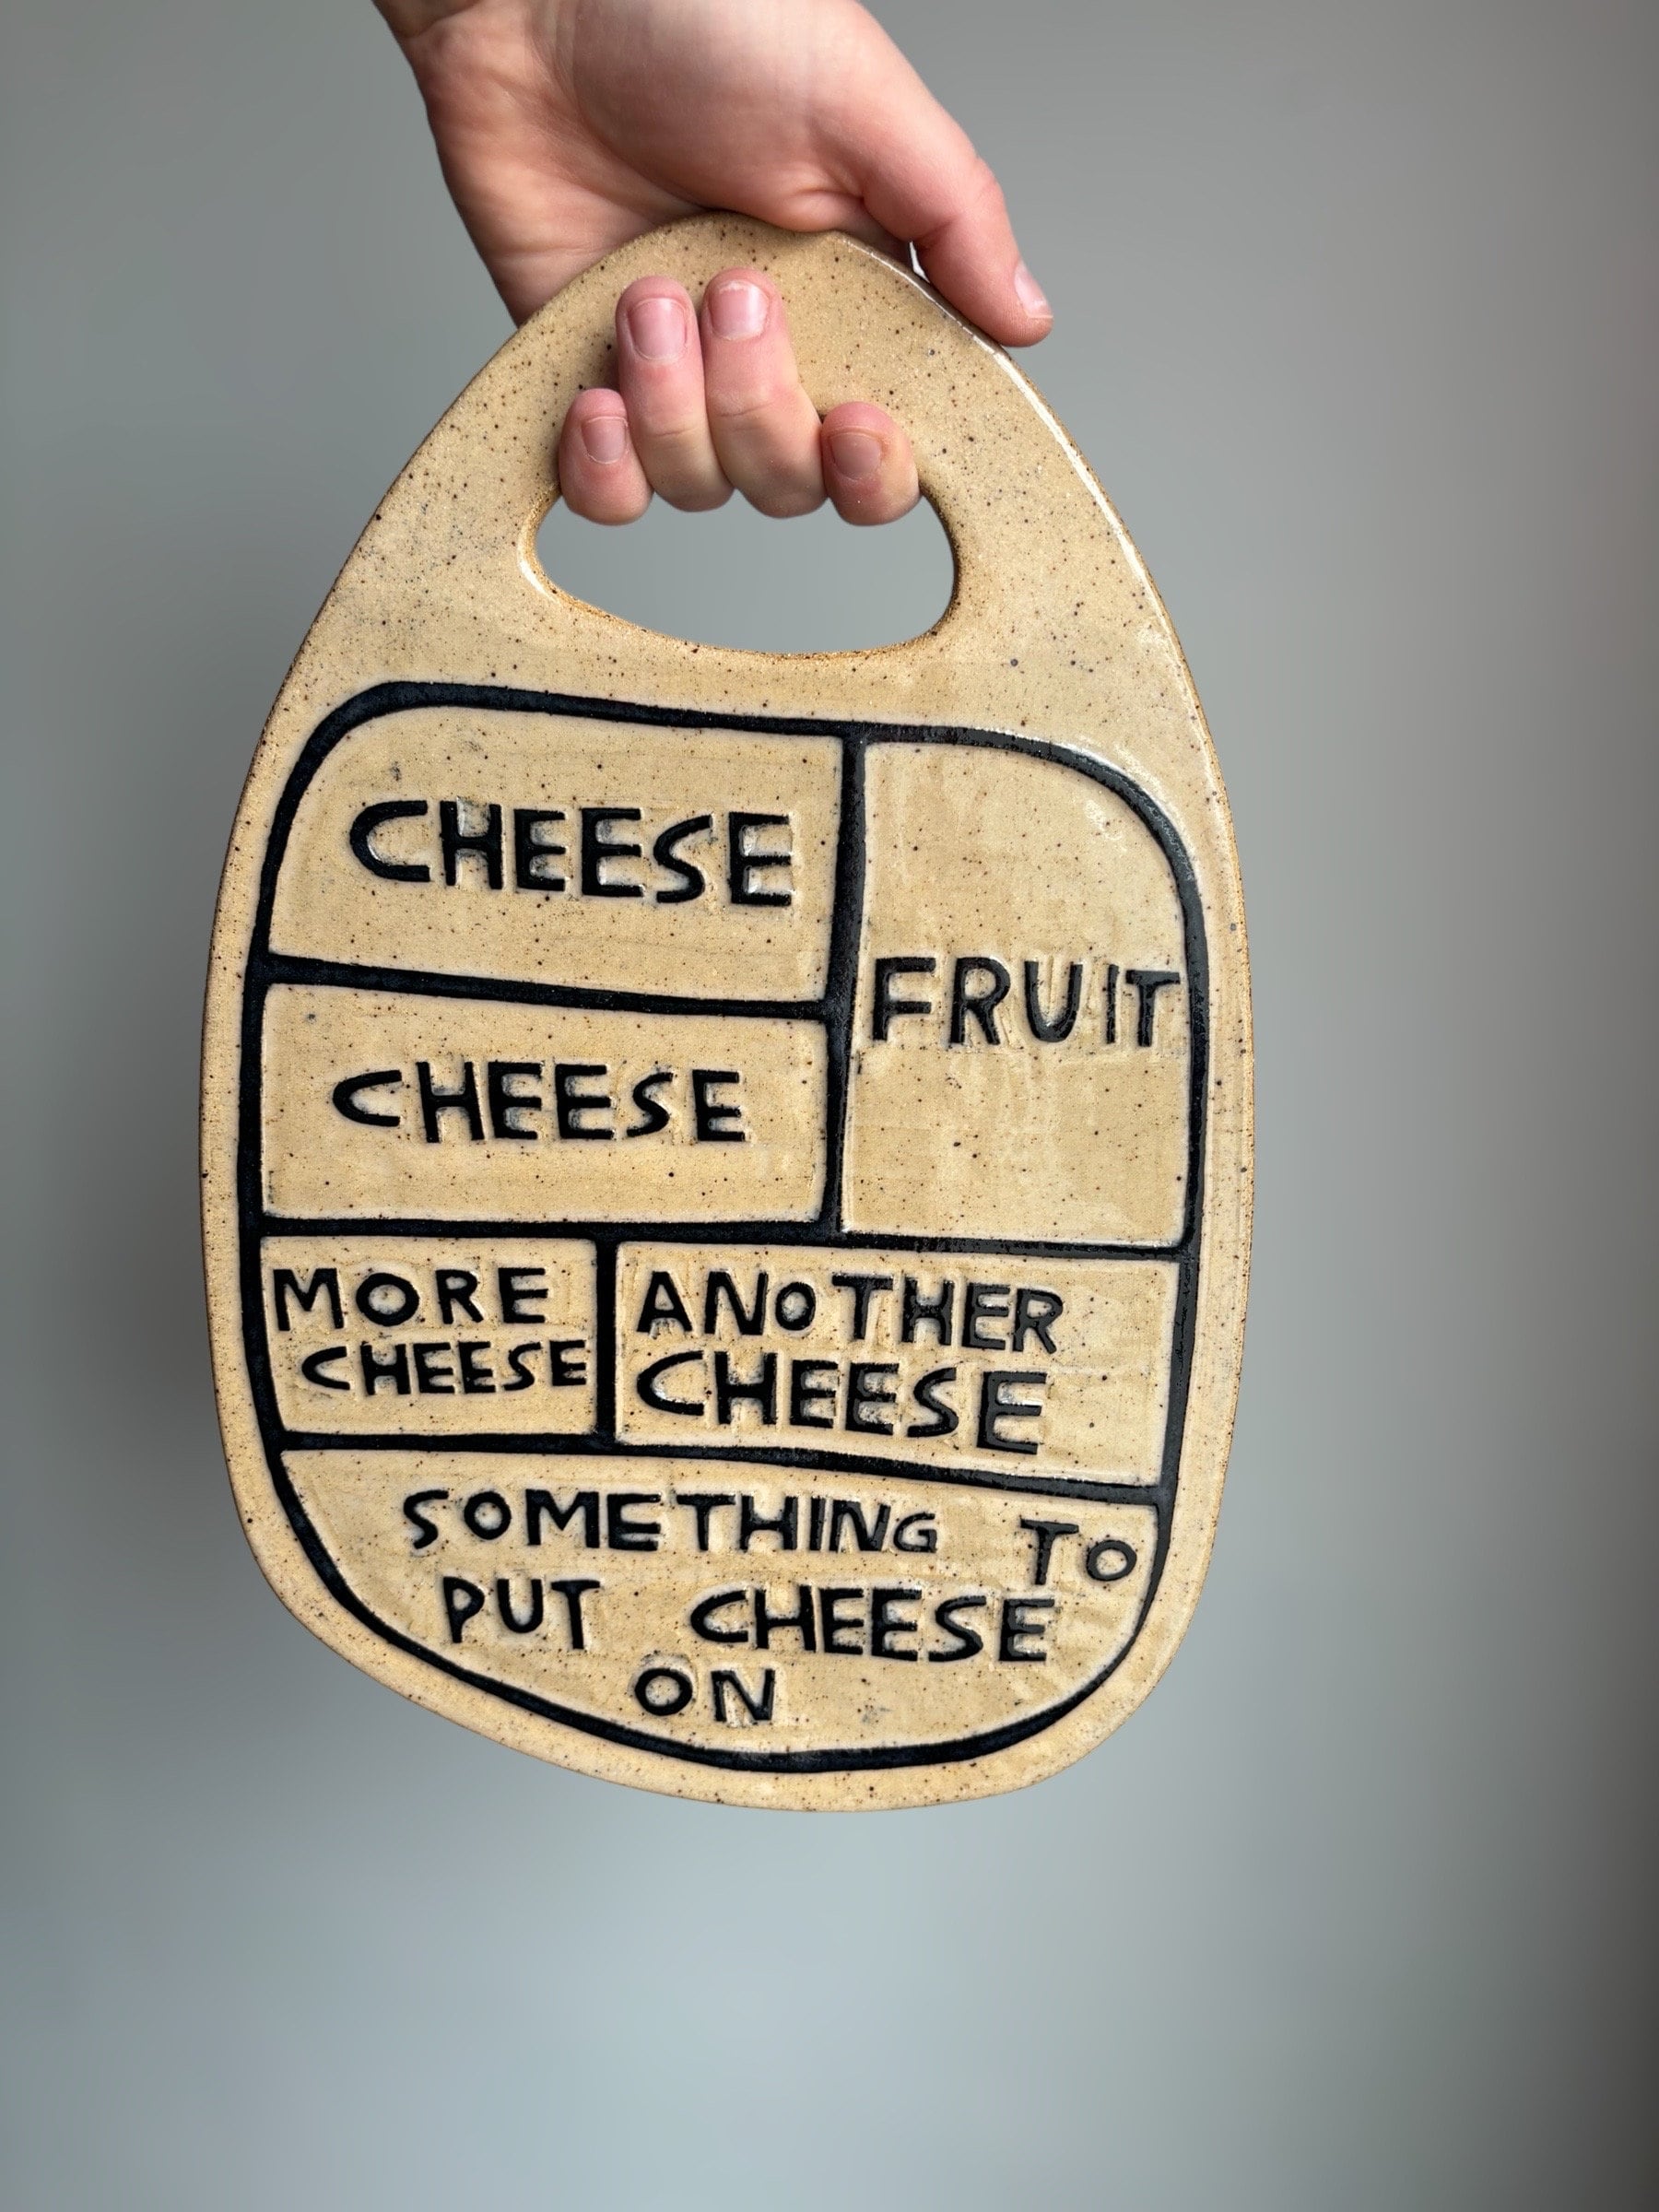 CHEESE
FRUIT
CHEESE
MORE
CHEESE
ANOTHER
CHEESE
SOMETHING TO
PUT CHEESE
ON